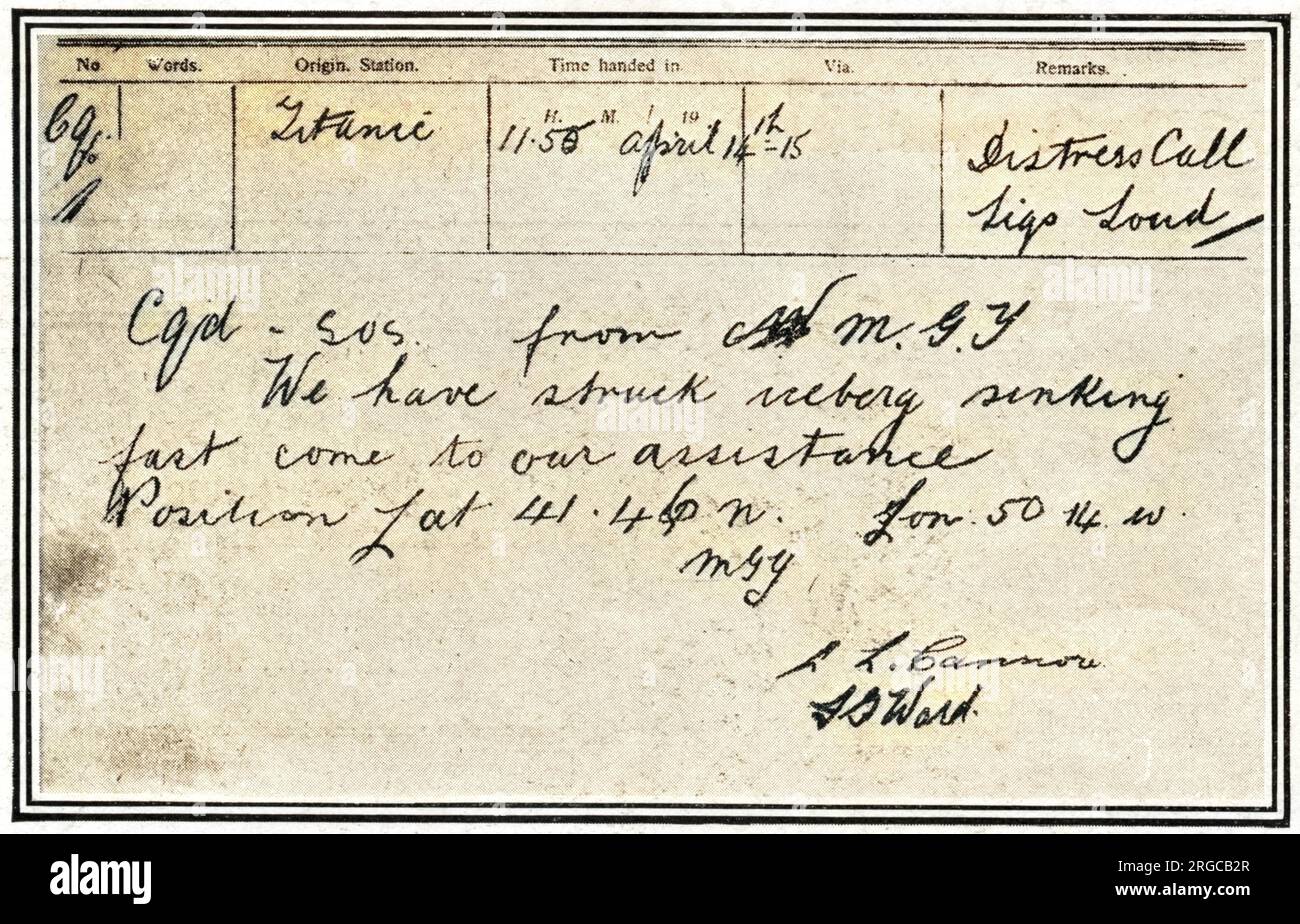 No Words. Origin. Station. Time handed in. Via. Remarks.
H. M. / 19
Titanic 11.50 April 14th-15 Distress Call
1 Sigs Loud
Cqd - SOS. from M.G.Y
We have struck iceberg sinking
fast come to our assistance
Position Lat 41.46 n. Lon. 50 14. w.
MGY
L. Cannon
Ward.
alamy
Image ID: 2RGCB2R
www.alamy.com